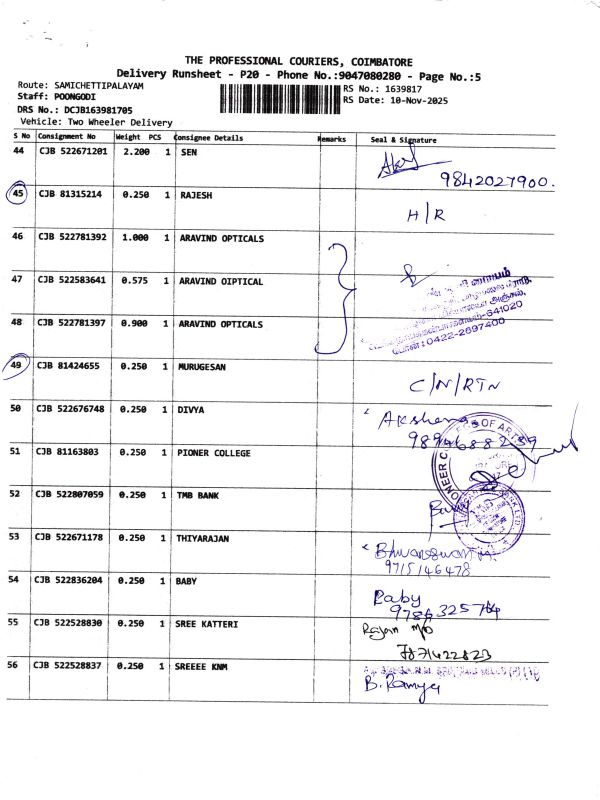 THE PROFESSIONAL COURIERS, COIMBATORE
Delivery Runsheet - P20 - Phone No.:9047080280 - Page No.:5
Route: SAMICHETTIPALAYAM
Staff: POONGODI
RS No.: 1639817
RS Date: 10-Nov-2025
DRS No.: DCJB163981705
Vehicle: Two Wheeler Delivery
S No Consignment No Weight PCS Consignee Details Remarks Seal & Signature
44 CJB 522671201 2.200 1 SEN
9842027900.
45 CJB 81315214 0.250 1 RAJESH
H/R
46 CJB 522781392 1.000 1 ARAVIND OPTICALS
47 CJB 522583641 0.575 1 ARAVIND OIPTICAL
48 CJB 522781397 0.900 1 ARAVIND OPTICALS
641020
0422-2697400
49 CJB 81424655 0.250 1 MURUGESAN
C/N/RTN
50 CJB 522676748 0.250 1 DIVYA
51 CJB 81163803 0.250 1 PIONER COLLEGE
52 CJB 522807059 0.250 1 TMB BANK
53 CJB 522671178 0.250 1 THIYARAJAN
9715146478
54 CJB 522836204 0.250 1 BABY
Baby
55 CJB 522528830 0.250 1 SREE KATTERI
Rajan m/o
7871422823
56 CJB 522528837 0.250 1 SREEEE KNM
B. Ramya